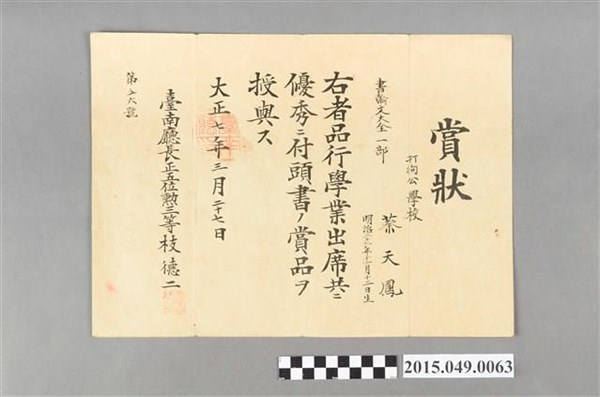 賞狀
打狗公學校
蔡天鳳
書翰文大全一部
右者品行學業出席共ニ
優秀ニ付頭書ノ賞品ヲ
授與ス
大正七年三月二十七日
臺南廳長正五位勲三等枝德二
第五六號
2015.049.0063